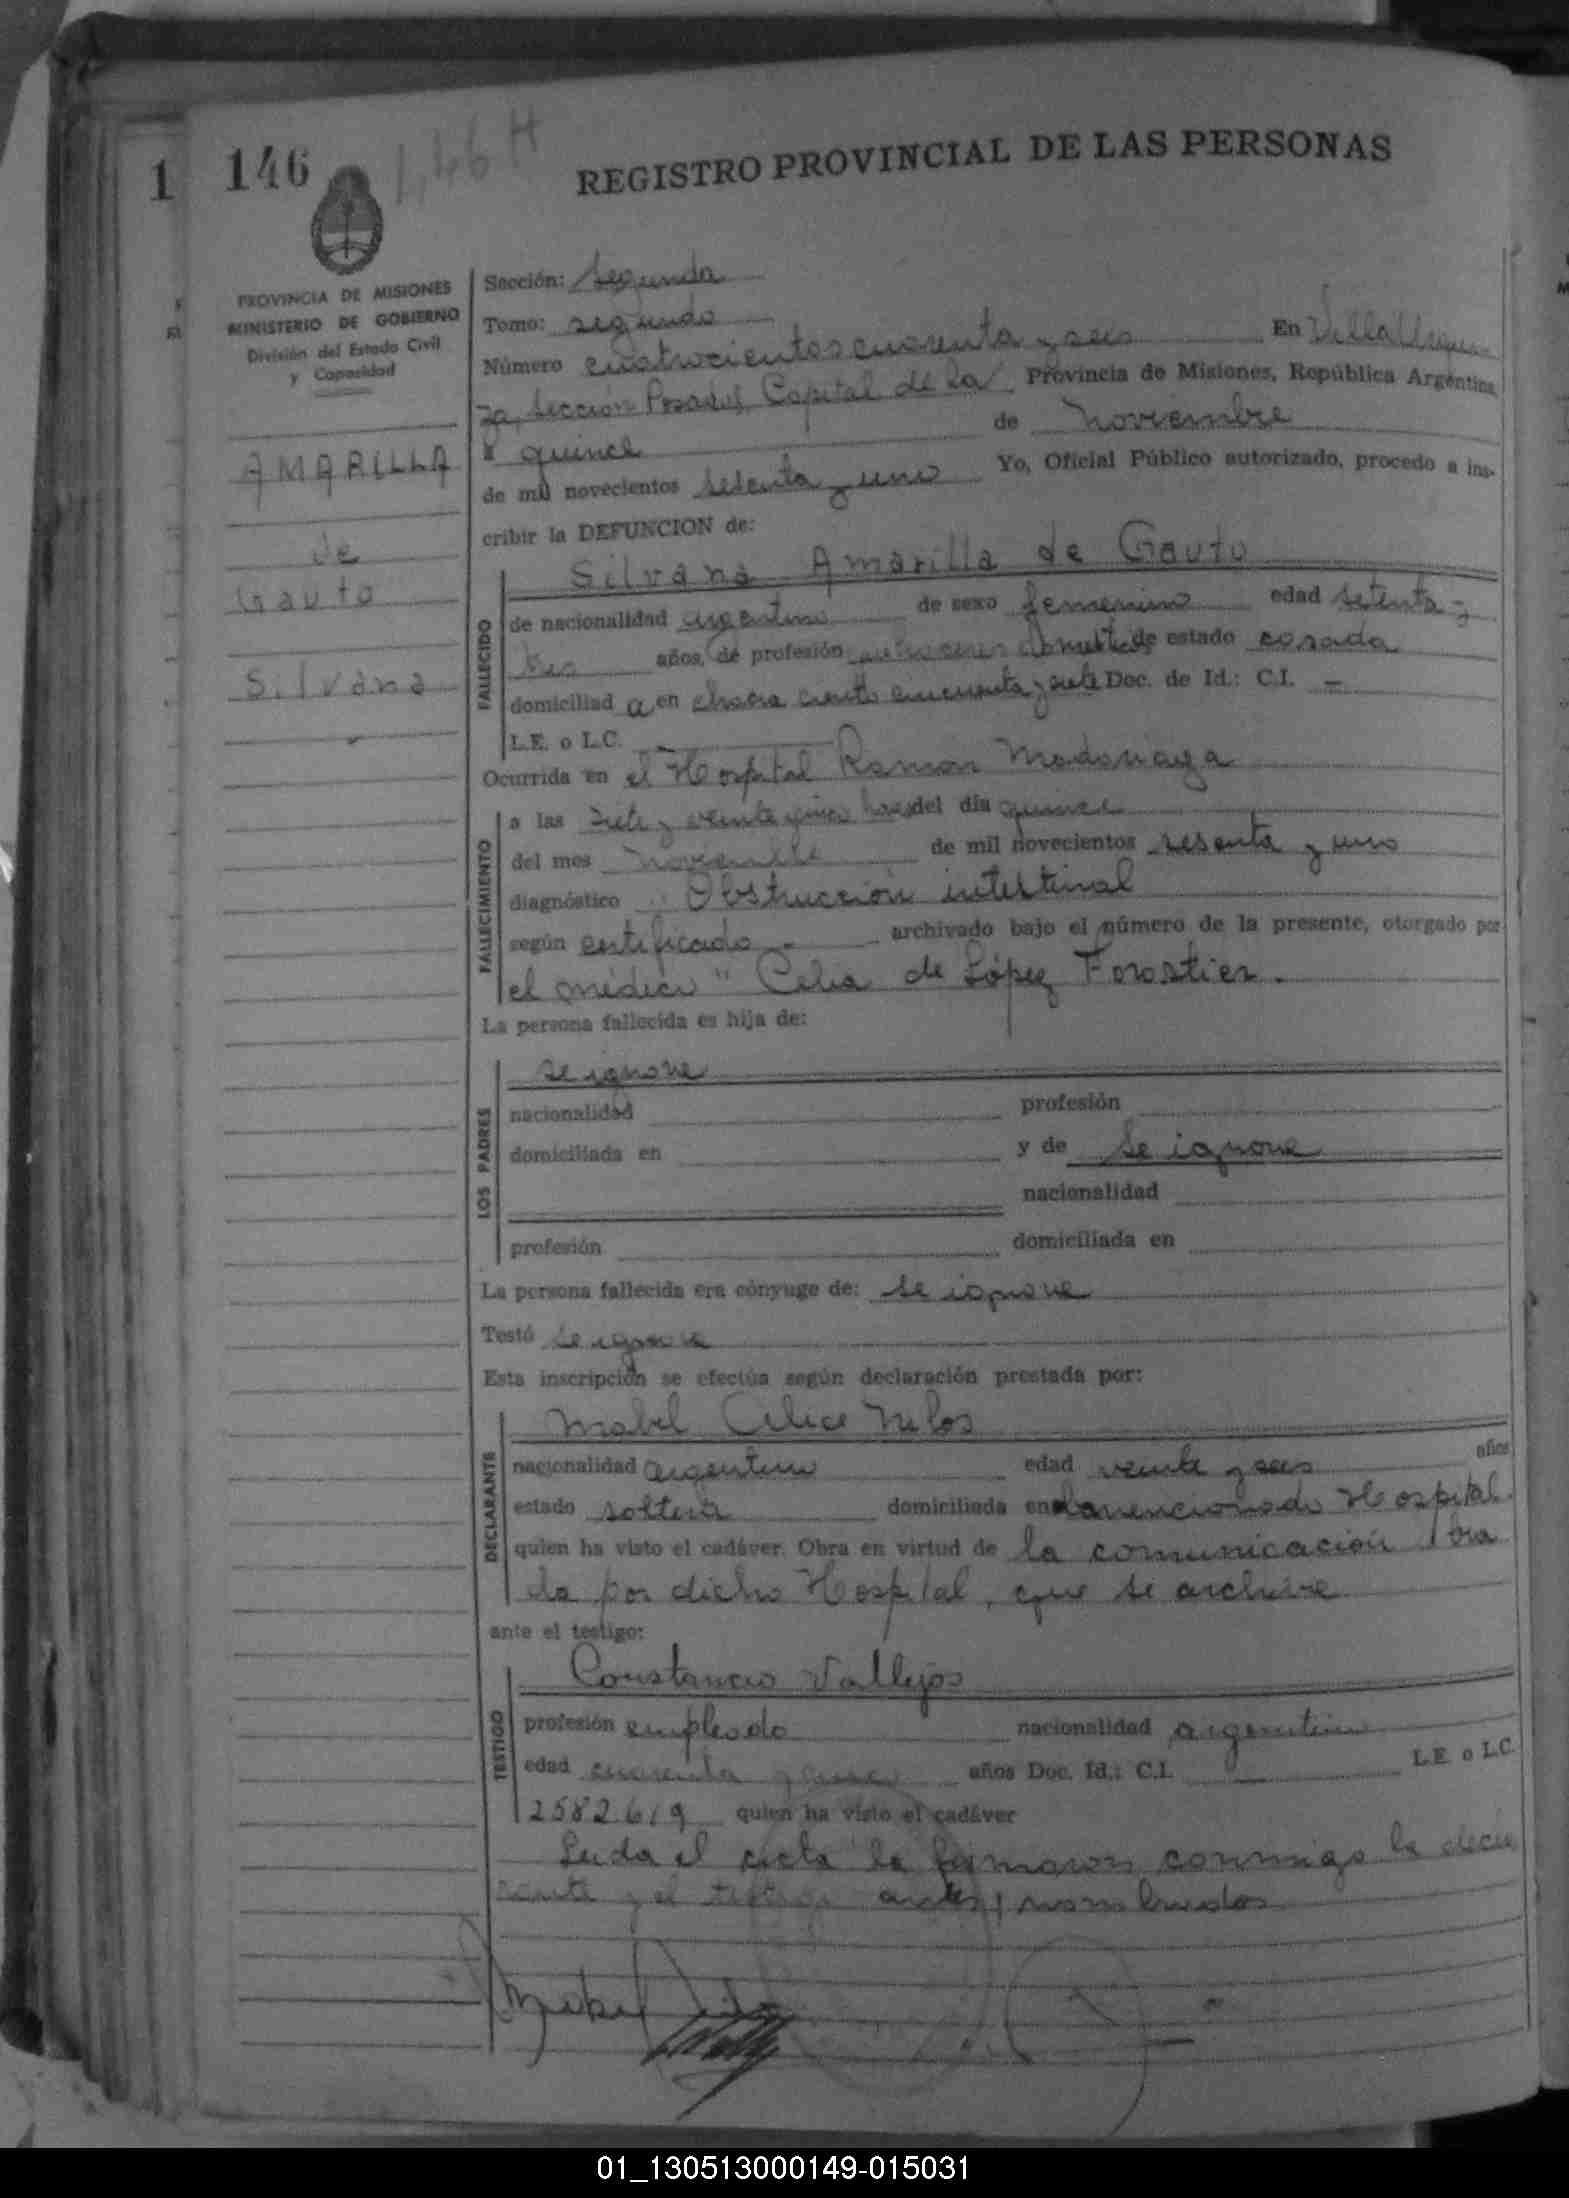 1 146 1,46 H
REGISTRO PROVINCIAL DE LAS PERSONAS
PROVINCIA DE MISIONES
MINISTERIO DE GOBIERNO
División del Estado Civil
y Capacidad
AMARILLA
de
Gauto
Silvana
Sección: segunda
Tomo: segundo
Número cuatrocientos cuarenta y seis En Villa Urqui-
za, sección Posadas, Capital de la Provincia de Misiones, República Argentina,
a quince de noviembre
de mil novecientos sesenta y uno Yo, Oficial Público autorizado, procedo a ins-
cribir la DEFUNCION de:
Silvana Amarilla de Gauto
FALLECIDO
de nacionalidad argentina de sexo femenino edad setenta y
tres años, de profesión quehaceres domésticos de estado casada
domiciliad a en chacra ciento cincuenta y siete Doc. de Id.: C.I. —
L.E. o L.C. —
Ocurrida en el Hospital Ramón Madariaga
FALLECIMIENTO
a las siete y veinte y cinco horas del día quince
del mes noviembre de mil novecientos sesenta y uno
diagnóstico Obstrucción intestinal
según certificado - archivado bajo el número de la presente, otorgado por
el médico " Celia de López Forastier.
La persona fallecida es hija de:
LOS PADRES
se ignora
nacionalidad profesión
domiciliada en y de se ignora
nacionalidad
profesión domiciliada en
La persona fallecida era cónyuge de: se ignora
Testó se ignora
Esta inscripción se efectúa según declaración prestada por:
DECLARANTE
Mabel Alice
nacionalidad argentina edad veinte y seis años
estado soltera domiciliada en el mencionado Hospital
quien ha visto el cadáver. Obra en virtud de la comunicación
da por dicho Hospital, que se archiva
ante el testigo:
TESTIGO
Constancio Vallejos
profesión empleado nacionalidad argentino
edad cuarenta y cinco años Doc. Id.: C.I. — L.E. o L.C.
2582.619 quien ha visto el cadáver
Leida el acta la firmaron conmigo la decla
rante y el testigo antes nombrados
Mabel
01_130513000149-015031